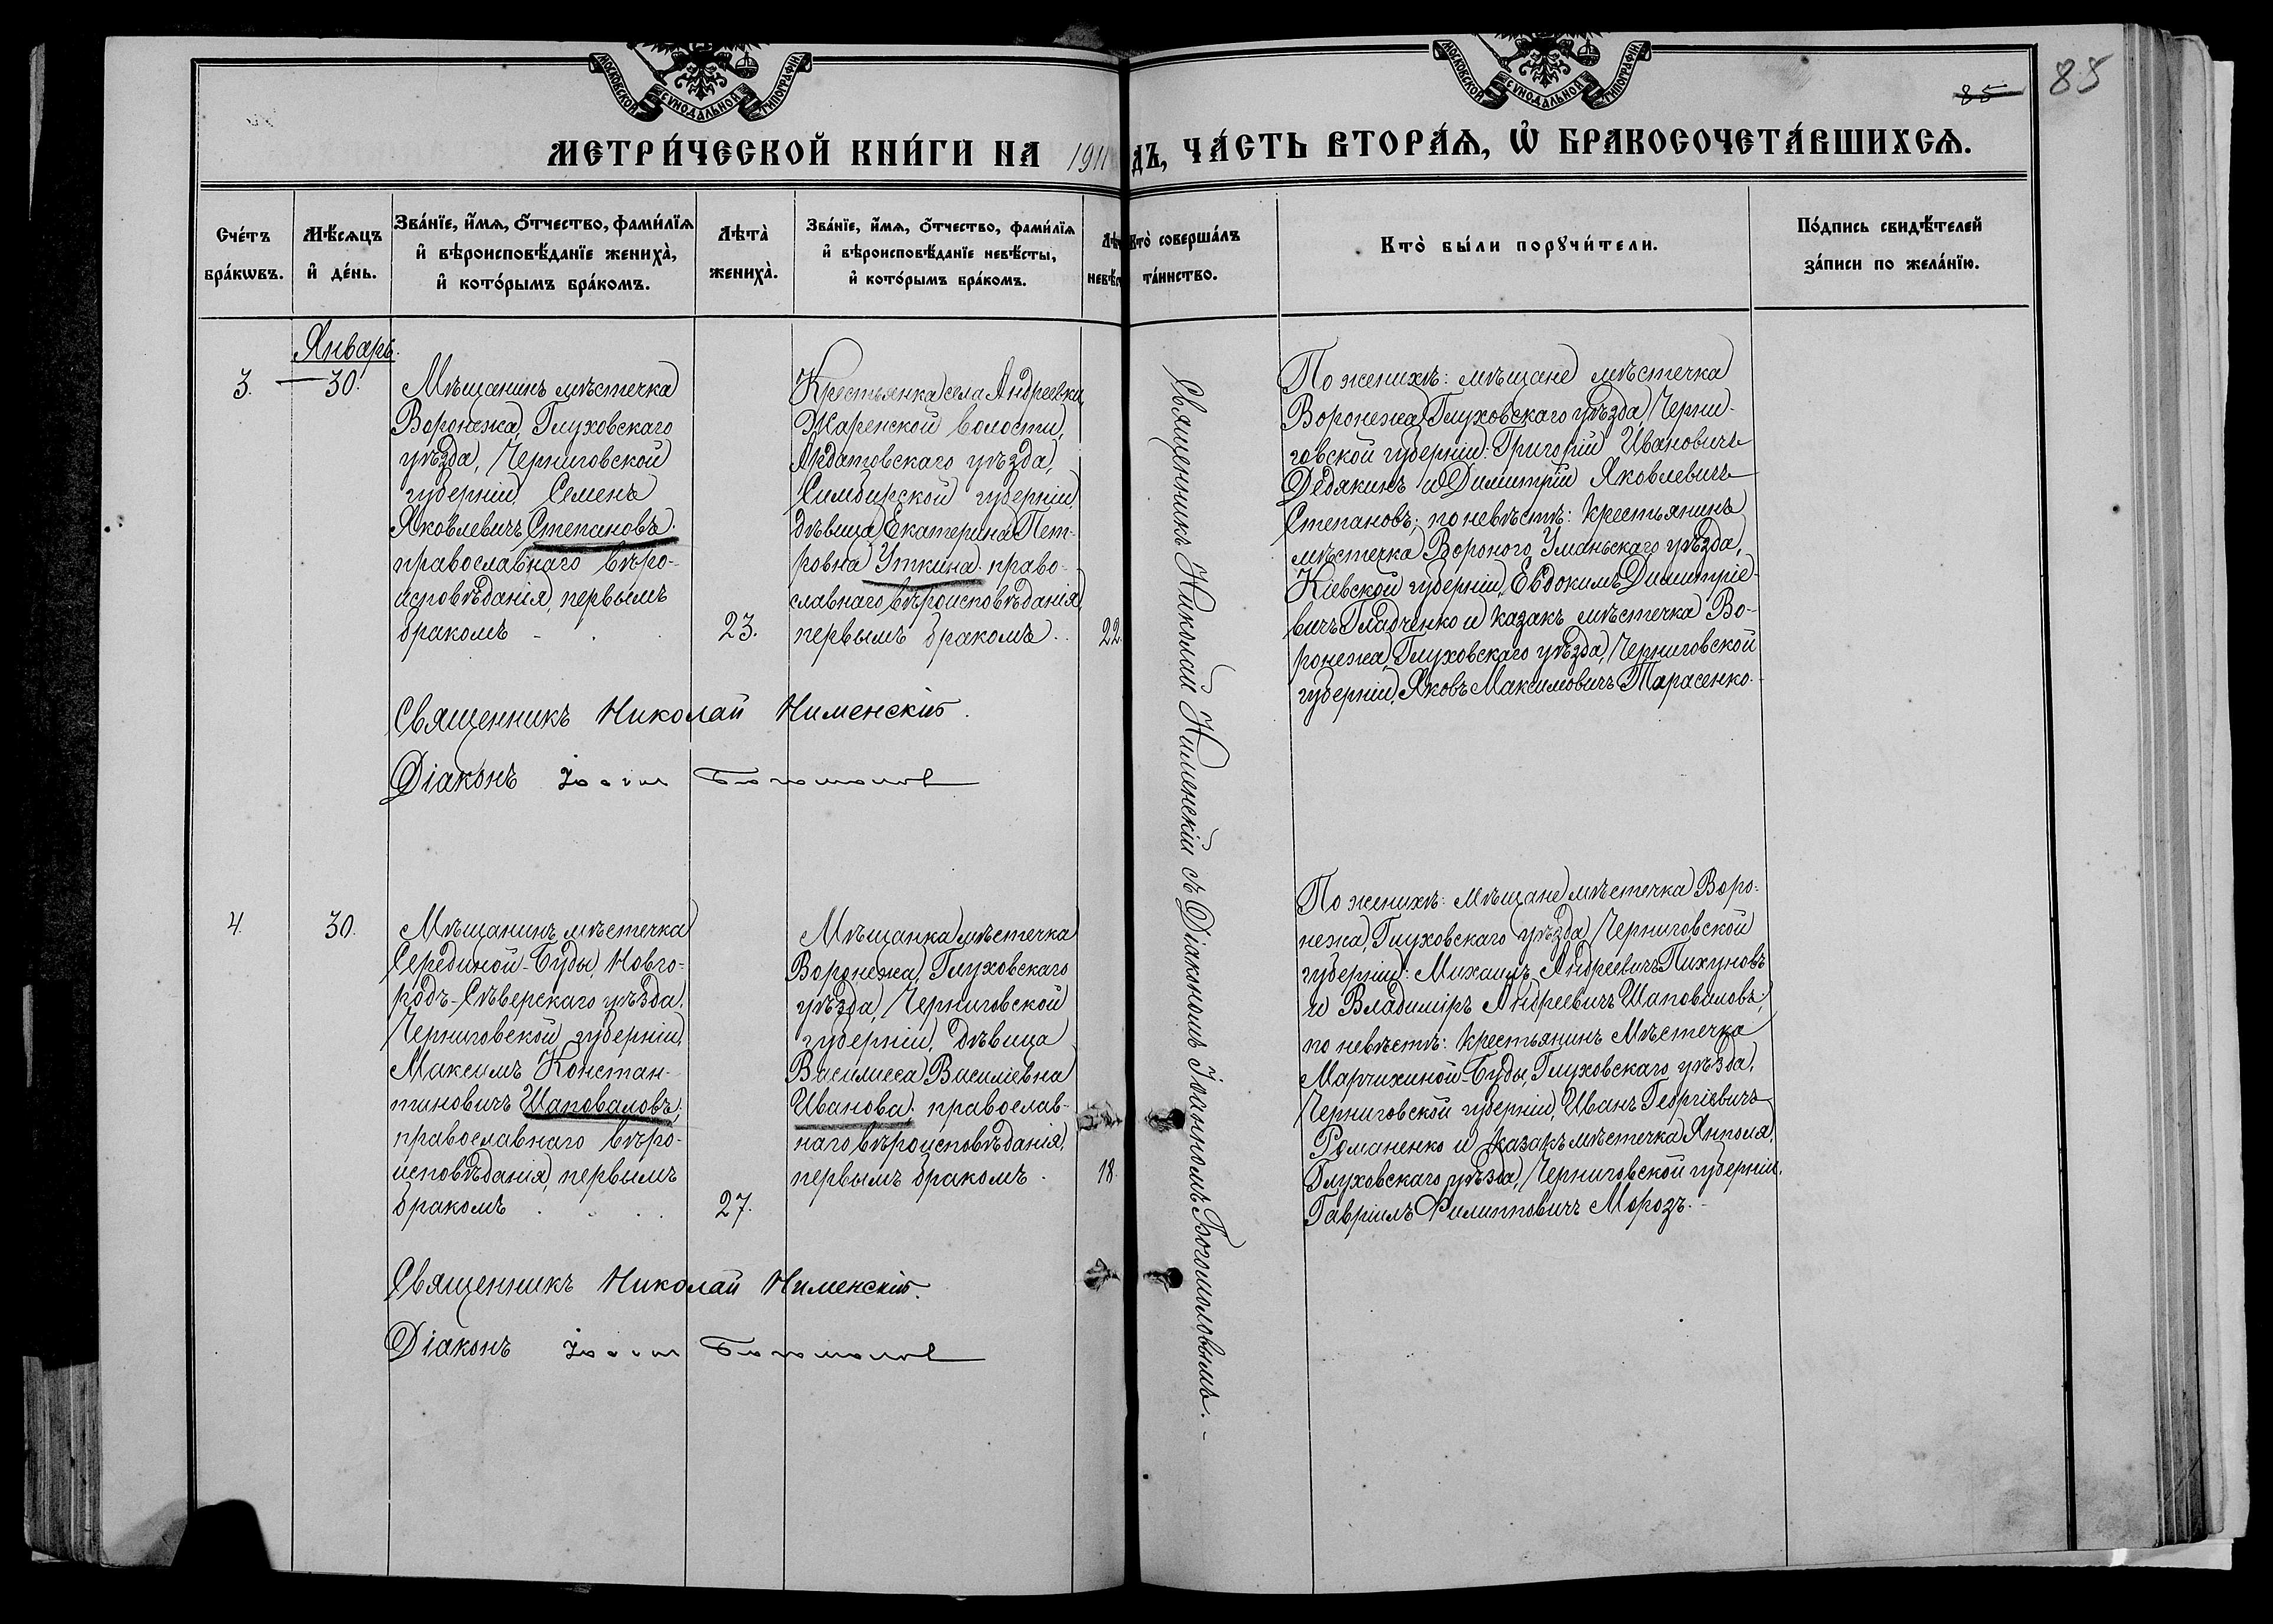 МОСКОВСКОЙ СѴНОДАЛЬНОЙ ТИПОГРАФІИ
МОСКОВСКОЙ СѴНОДАЛЬНОЙ ТИПОГРАФІИ
85
85
МЕТРИ́ЧЕСКОЙ КНИ́ГИ НА 1911
ДЪ, ЧА́СТЬ ВТОРА́Ѧ, Ѡ҆ БРАКОСОЧЕТА́ВШИХСѦ.
Сче́тъ
бра́кѡвъ.
Мѣ́сѧцъ
и҆ де́нь.
Зва́нїе, и҆́мѧ, ѻ҆́тчество, фами́лїѧ
и҆ вѣроисповѣ́данїе жениха̀,
и҆ кото́рымъ бра́комъ.
Лѣта̀
жениха̀.
Зва́нїе, и҆́мѧ, ѻ҆́тчество, фами́лїѧ
и҆ вѣроисповѣ́данїе невѣ́сты,
и҆ кото́рымъ бра́комъ.
Лѣ
невѣ́с
Кто̀ соверша́лъ
та́инство.
Кто̀ бы́ли порꙋчи́тели.
По́дпись свидѣ́телей
за́писи по жела́нїю.
Январь.
3.
30.
Мѣщанинъ мѣстечка
Воронежа, Глуховскаго
уѣзда, Черниговской
губерніи, Семенъ
Яковлевичъ Степановъ,
православнаго вѣро-
исповѣданія, первымъ
бракомъ
23.
Крестьянка села Андреевки,
Жаренской волости,
Ардатовскаго уѣзда,
Симбирской губерніи,
дѣвица Екатерина Пет-
ровна Уткина, право-
славнаго вѣроисповѣданія,
первымъ бракомъ.
22.
Священникъ Николай Нименскій съ Діакономъ Іоанномъ Богомоловымъ.
По женихѣ: мѣщане мѣстечка
Воронежа, Глуховскаго уѣзда, Черни-
говской губерніи: Григорій Ивановичъ
Дедякинъ и Димитрій Яковлевичъ
Степановъ; по невѣстѣ: крестьянинъ
мѣстечка Вороного, Уманьскаго уѣзда,
Кіевской губерніи, Евдокимъ Димитріе-
вичъ Гладченко и казакъ мѣстечка Во-
ронежа, Глуховскаго уѣзда, Черниговской
губерніи, Яковъ Максимовичъ Тарасенко.
Священникъ Николай Нименскій.
Діаконъ Іоанн Богомолов
4.
30.
Мѣщанинъ мѣстечка
Середіной-Буды, Новго-
родъ-Сѣверскаго уѣзда,
Черниговской губерніи,
Максимъ Констан-
тиновичъ Шаповаловъ,
православнаго вѣро-
исповѣданія, первымъ
бракомъ
27.
Мѣщанка мѣстечка
Воронежа, Глуховскаго
уѣзда, Черниговской
губерніи, дѣвица
Василисса Василіевна
Иванова, православ-
наго вѣроисповѣданія,
первымъ бракомъ.
18.
По женихѣ: мѣщане мѣстечка Воро-
нежа, Глуховскаго уѣзда, Черниговской
губерніи: Михаилъ Андреевичъ Пихуновъ
и Владиміръ Андреевичъ Шаповаловъ;
по невѣстѣ: крестьянинъ мѣстечка
Марчихиной-Буды, Глуховскаго уѣзда,
Черниговской губерніи, Иванъ Георгіевичъ
Романенко и казакъ мѣстечка Янполя,
Глуховскаго уѣзда, Черниговской губерніи,
Гавріилъ Филипповичъ Морозъ.
Священникъ Николай Нименскій.
Діаконъ Іоанн Богомолов